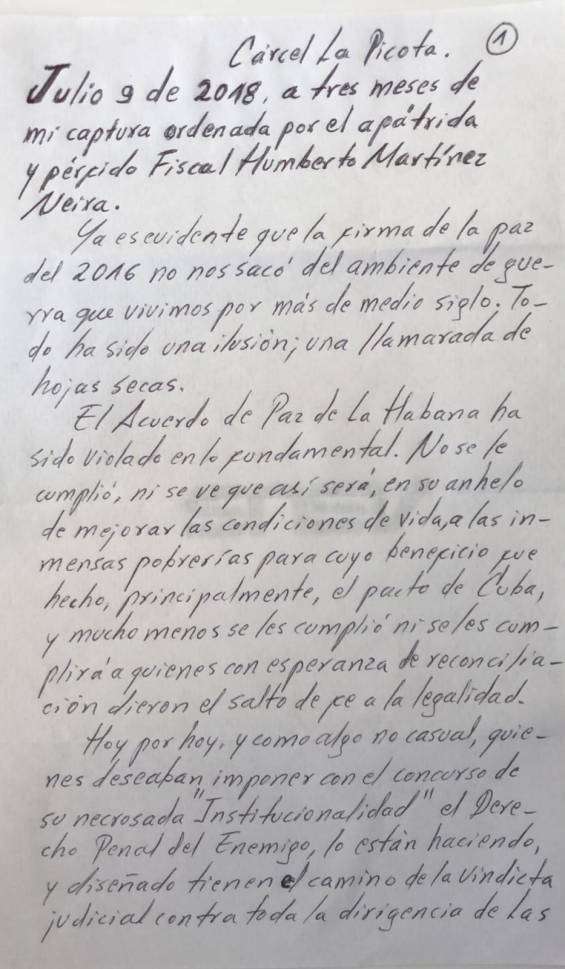 Cárcel La Picota. 1
Julio 9 de 2018, a tres meses de
mi captura ordenada por el apátrida
y pérfido Fiscal Humberto Martínez
Neira.
Ya es evidente que la firma de la paz
del 2016 no nos sacó del ambiente de gue-
rra que vivimos por más de medio siglo. To-
do ha sido una ilusión; una llamarada de
hojas secas.
El Acuerdo de Paz de La Habana ha
sido violado en lo fundamental. No se le
cumplió, ni se ve que así será, en su anhelo
de mejorar las condiciones de vida, a las in-
mensas pobrerías para cuyo beneficio fue
hecho, principalmente, el pacto de Cuba,
y mucho menos se les cumplió ni se les cum-
plirá a quienes con esperanza de reconcilia-
ción dieron el salto de fe a la legalidad.
Hoy por hoy, y como algo no casual, quie-
nes deseaban imponer con el concurso de
su necrosada "Institucionalidad" el Dere-
cho Penal del Enemigo, lo están haciendo,
y diseñado tienen el camino de la vindicta
judicial contra toda la dirigencia de Las